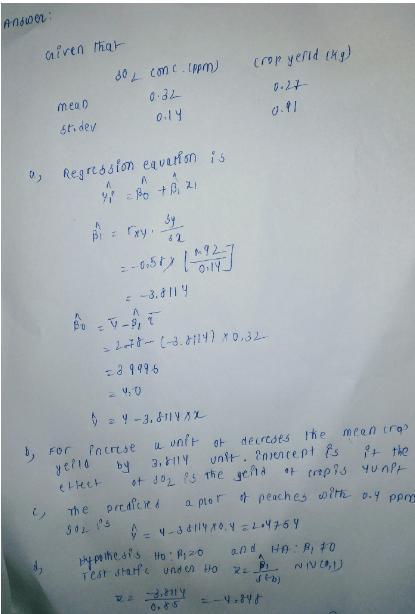 Answer:
Given that
SO2 conc. (ppm) crop yeild (kg)
mean 0.32 0.27
st.dev 0.14 0.91
a, Regression equation is
ŷi = β̂0 + β̂1 x1
β̂1 = rxy . sy/sx
= -0.58 × [0.92/0.14]
= -3.8114
β̂0 = ȳ - β̂1 x̄
= 2.78 - (-3.8114) × 0.32
= 3.9996
= 4.0
ŷ = 4 - 3.8114 × x
b, For increse a unit of decreses the mean crop
yeild by 3.8114 unit. Intercept is if the
effect of SO2 is the yeild of crop is 4 unit
c, The predicted a plot of peaches with 0.4 ppm
SO2 is ŷ = 4 - 3.8114 × 0.4 = 2.4754
d, Hypothesis H0: β1=0 and HA: β1 ≠0
Test static under H0 z = β̂1/s(b1) ~ N(0,1)
z = -3.8114/0.85 = -4.848